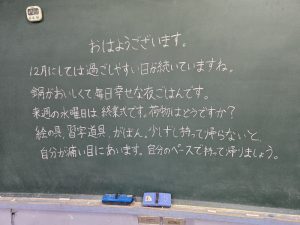 おはようございます。
12月にしては過ごしやすい日が続いていますね。
鍋がおいしくて毎日幸せな夜ごはんです。
来週の水曜日は終業式です。荷物はどうですか？
絵の具、習字道具、かばん、少しずつ持って帰らないと、
自分が痛い目にあいます。自分のペースで持って帰りましょう。